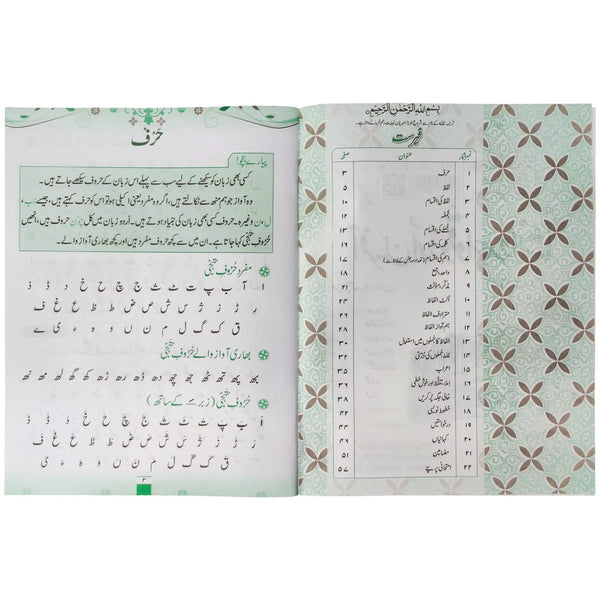 حَرْف
پیارے بچّو!
کسی بھی زبان کو سیکھنے کے لیے سب سے پہلے اُس زبان کے حروف سیکھے جاتے ہیں۔
وہ آواز جو ہم منھ سے نکالتے ہیں، اگر وہ مفرد یعنی اکیلی ہو تو اس کو حرف کہتے ہیں، جیسے: ب،
ل، من وغیرہ۔ حروف کسی بھی زبان کی بنیاد ہوتے ہیں۔ اُردو زبان میں کل چوّن حروف ہیں، انھیں
حُرُوفِ تہجّی کہا جاتا ہے۔ ان میں سے کچھ حروف مفرد ہیں اور کچھ بھاری آواز والے۔
مفرد حُرُوفِ تہجّی
ا آ ب پ ت ٹ ث ج چ ح خ د ڈ ذ
ر ڑ ز ژ س ش ص ض ط ظ ع غ ف
ق ک گ ل م ن ں و ہ ء ی ے
بھاری آواز والے حُرُوفِ تہجّی
بھ پھ تھ ٹھ جھ چھ دھ ڈھ رھ ڑھ کھ گھ لھ مھ نھ
حُرُوفِ تہجّی (زبر کے ساتھ)
اَ بَ پَ تَ ٹَ ثَ جَ چَ حَ خَ دَ ڈَ ذَ
رَ ڑَ زَ ژَ سَ شَ صَ ضَ طَ ظَ عَ غَ فَ
قَ کَ گَ لَ مَ نَ ں وَ ہَ ءَ یَ
۳
بِسْمِ اللّٰهِ الرَّحْمٰنِ الرَّحِيْمِ
فہرست
نمبر شمار عنوان صفحہ
۱ حرف ۳
۲ لفظ ۵
۳ لفظ کی اقسام ۱۰
۴ جُملہ ۱۲
۵ جُملے کی اقسام ۱۴
۶ کلمہ کی اقسام ۱۶
۷ اسم کی اقسام (تعداد اور جنس کے لحاظ سے) ۱۷
۸ واحد، جمع ۱۸
۹ مذکر، مؤنث ۲۱
۱۰ اُلٹ الفاظ ۲۴
۱۱ مترادف الفاظ ۲۶
۱۲ ہم آواز الفاظ ۲۸
۱۳ الفاظ کا جُملوں میں استعمال ۳۰
۱۴ غلط جُملوں کی دُرُستی ۳۲
۱۵ اعراب ۳۵
۱۶ اِملا، تلفّظ اور خوش خطی ۳۶
۱۷ خالی جگہ پُر کریں ۳۸
۱۸ خطوط نویسی
۱۹ درخواستیں
۲۰ کہانیاں ۴۶
۲۱ مضامین ۵۱
۲۲ امتحانی پرچے ۵۷